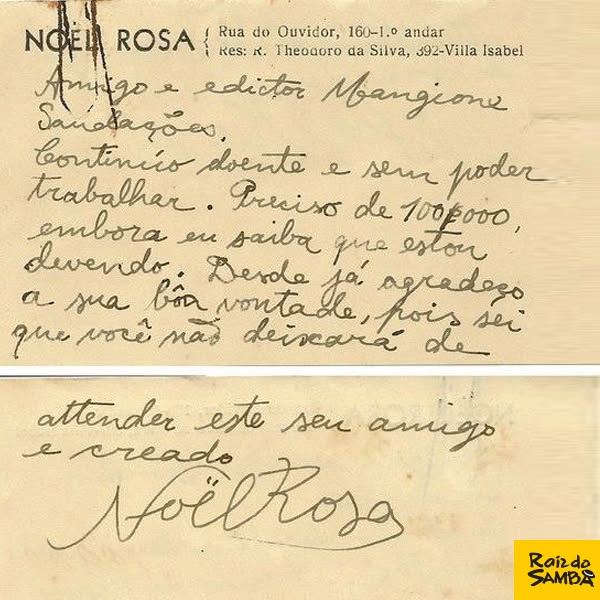 NOEL ROSA { Rua do Ouvidor, 160-1.º andar
Res: R. Theodoro da Silva, 392-Villa Isabel
Amigo e edictor Mangione
Saudações,
Continúo doente e sem poder
trabalhar. Preciso de 100$000,
embora eu saiba que estou
devendo. Desde já agradeço
a sua bôa vontade, pois sei
que você não deixará de
attender este seu amigo
e creado
Noël Rosa
Raiz do
SAMBA